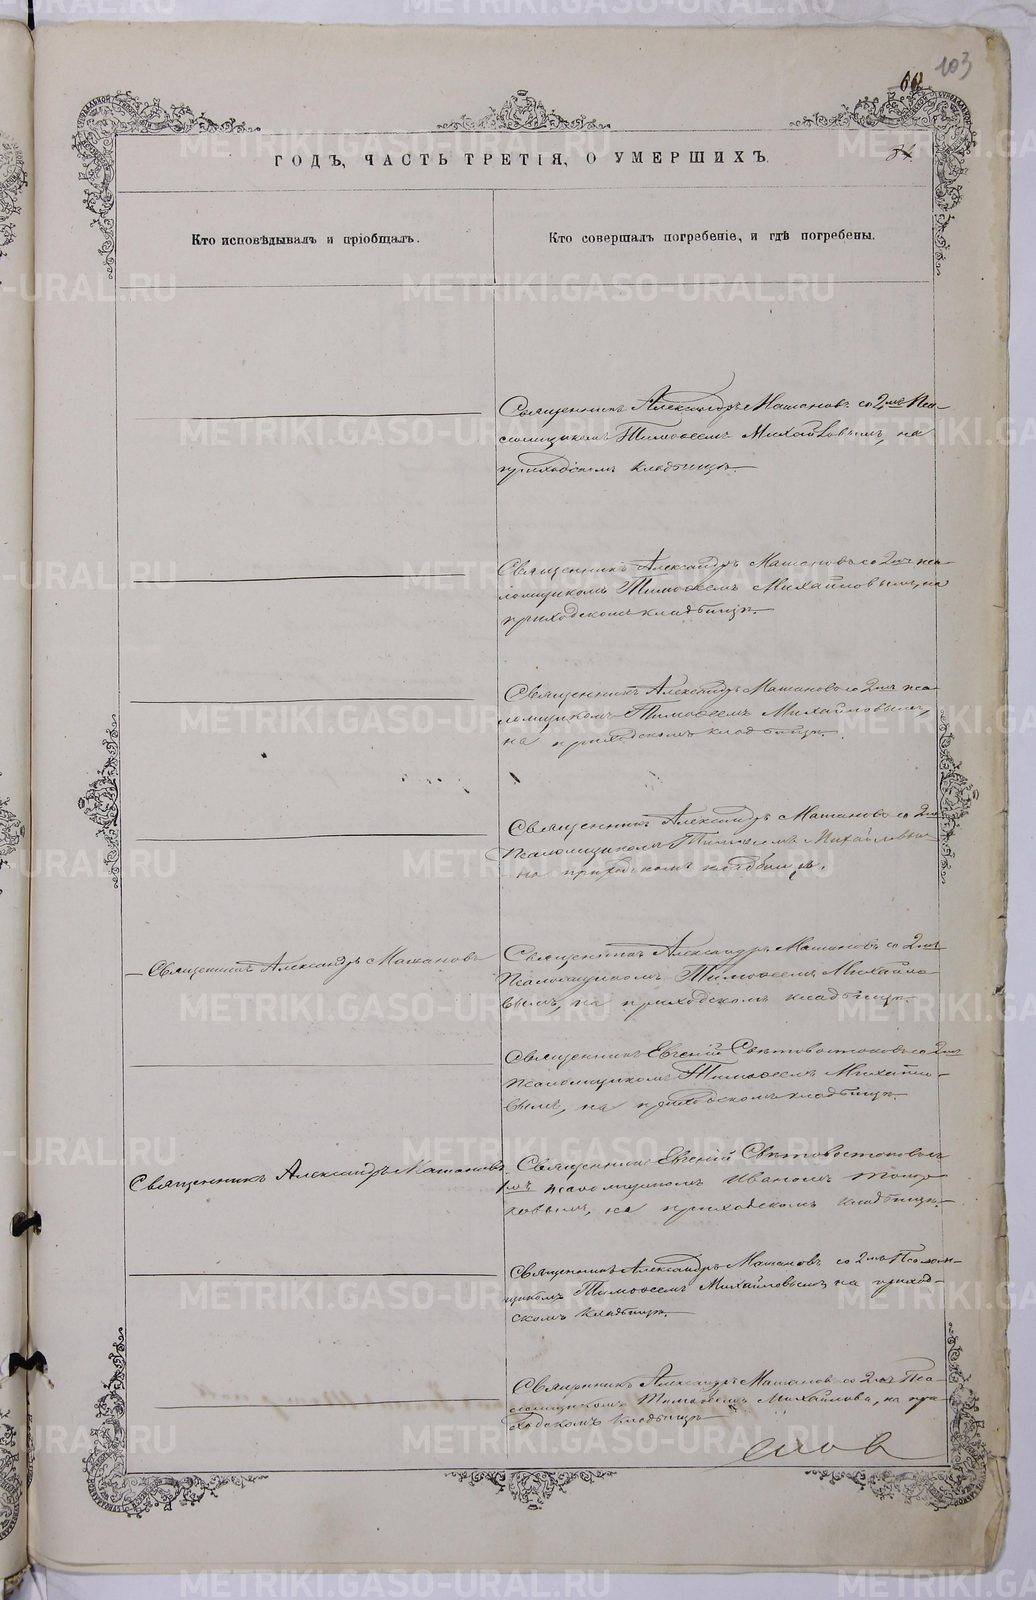 103
ГОДЪ, ЧАСТЬ ТРЕТІЯ, О УМЕРШИХЪ.
Кто исповѣдывалъ и пріобщалъ.
Кто совершалъ погребеніе, и гдѣ погребены.
Священникъ Александръ Машановъ со 2мъ Пса-
ломщикомъ Тимоѳеемъ Михайловымъ, на
приходскомъ кладбищѣ.
Священникъ Александръ Машановъ со 2мъ пса-
ломщикомъ Тимоѳеемъ Михайловымъ, на
приходскомъ кладбищѣ.
Священникъ Александръ Машановъ со 2мъ пса-
ломщикомъ Тимоѳеемъ Михайловымъ,
на приходскомъ кладбищѣ.
Священникъ Александръ Машановъ со 2мъ
Псаломщикомъ Тимоѳеемъ Михайловым
на приходскомъ кладбищѣ.
Священникъ Александръ Машановъ
Священникъ Александръ Машановъ со 2мъ
Псаломщикомъ Тимоѳеемъ Михайло-
вымъ, на приходскомъ кладбищѣ.
Священникъ Евгеній Свѣтовостоковъ со 2мъ
Псаломщикомъ Тимоѳеемъ Михайло-
вымъ, на приходскомъ кладбищѣ.
Священникъ Александръ Машановъ.
Священникъ Евгеній Свѣтовостоковъ съ
1мъ псаломщикомъ Иваномъ Топор-
ковымъ, на приходскомъ кладбищѣ.
Священникъ Александръ Машановъ со 2мъ Псалом-
щикомъ Тимоѳеемъ Михайловымъ на приход-
скомъ кладбищѣ.
Священникъ Александръ Машановъ со 2мъ Пса-
ломщикомъ Тимоѳеемъ Михайловымъ, на при-
ходскомъ кладбищѣ
METRIKI.GASO-URAL.RU